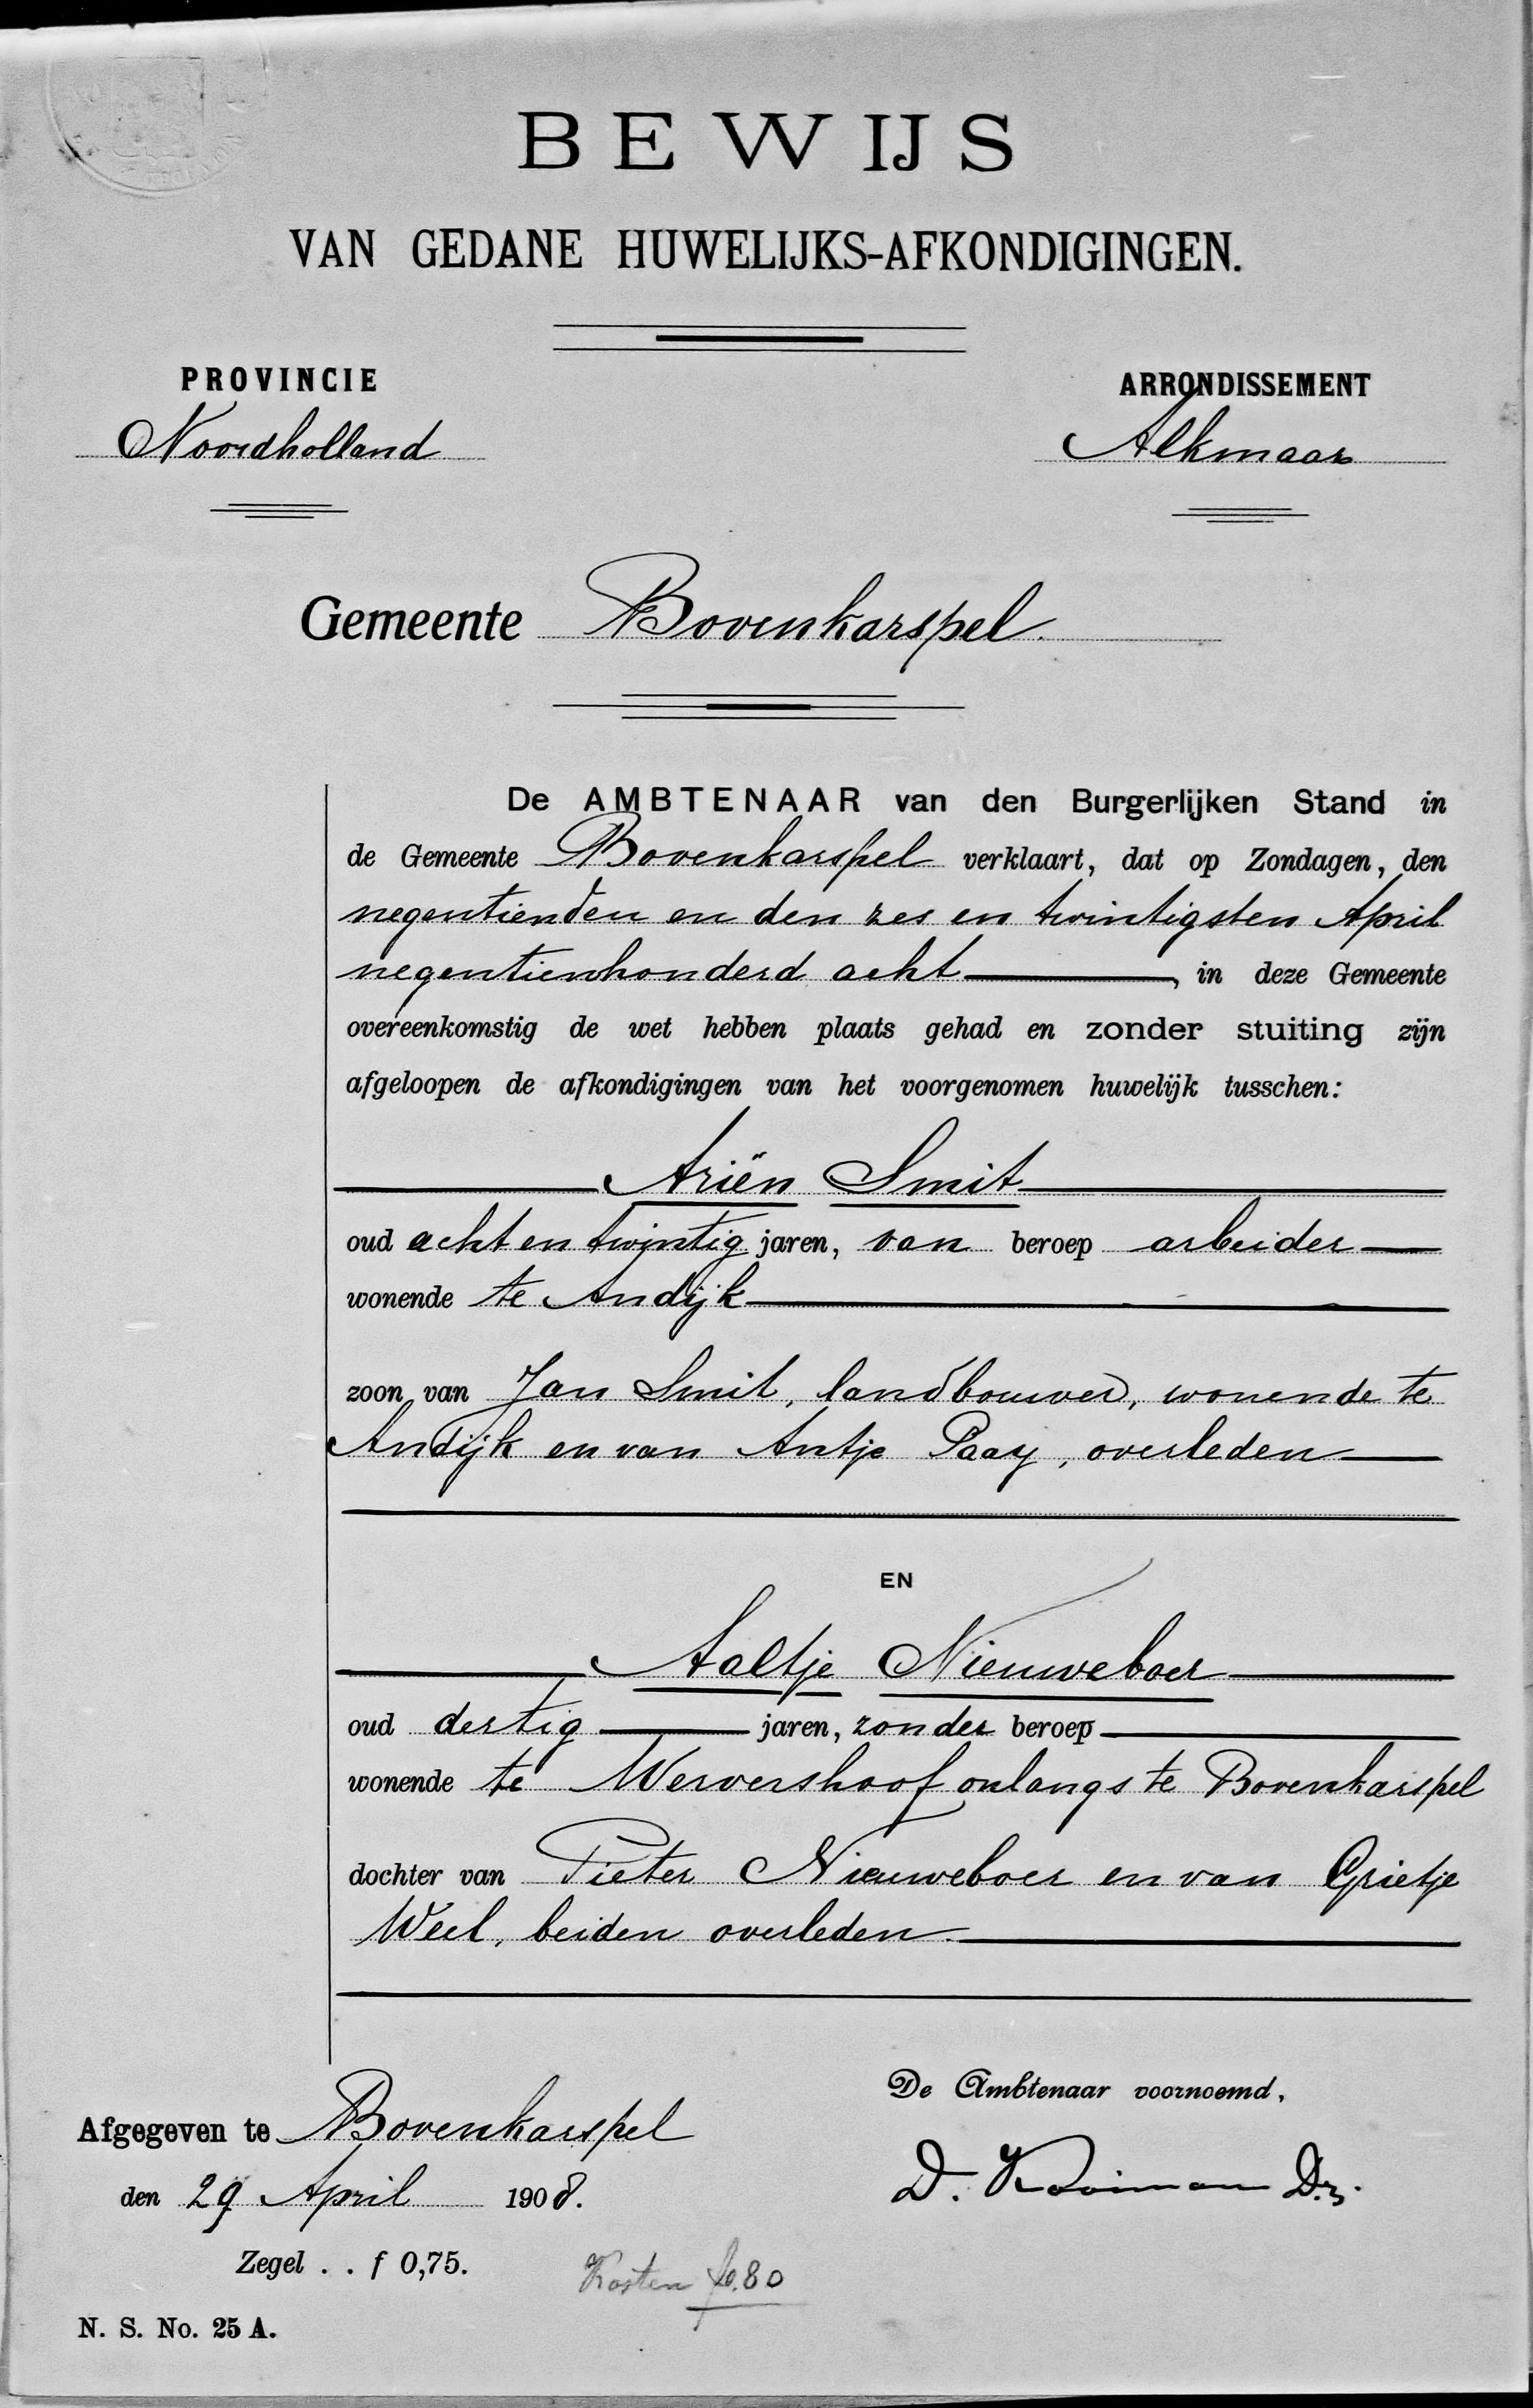 BEWIJS
VAN GEDANE HUWELIJKS-AFKONDIGINGEN.
PROVINCIE
Noordholland
ARRONDISSEMENT
Alkmaar
Gemeente Bovenkarspel.
De AMBTENAAR van den Burgerlijken Stand in
de Gemeente Bovenkarspel verklaart, dat op Zondagen, den
negentienden en den zes en twintigsten April
negentienhonderd acht, in deze Gemeente
overeenkomstig de wet hebben plaats gehad en zonder stuiting zijn
afgeloopen de afkondigingen van het voorgenomen huwelijk tusschen:
Ariën Smit
oud acht en twintig jaren, van beroep arbeider
wonende te Andijk
zoon van Jan Smit, landbouwer, wonende te
Andijk en van Antje Paay, overleden
EN
Aaltje Nieuweboer
oud dertig jaren, zonder beroep
wonende te Wervershoof onlangs te Bovenkarspel
dochter van Pieter Nieuweboer en van Grietje
Weel, beiden overleden.
Afgegeven te Bovenkarspel
den 29 April 1908.
De Ambtenaar voornoemd,
D. Kooiman Dz.
Zegel . . f 0,75.
Kosten f0.80
N. S. No. 25 A.